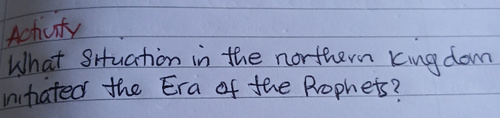 Activity
What Situation in the northern kingdom
initiated the Era of the Prophets?